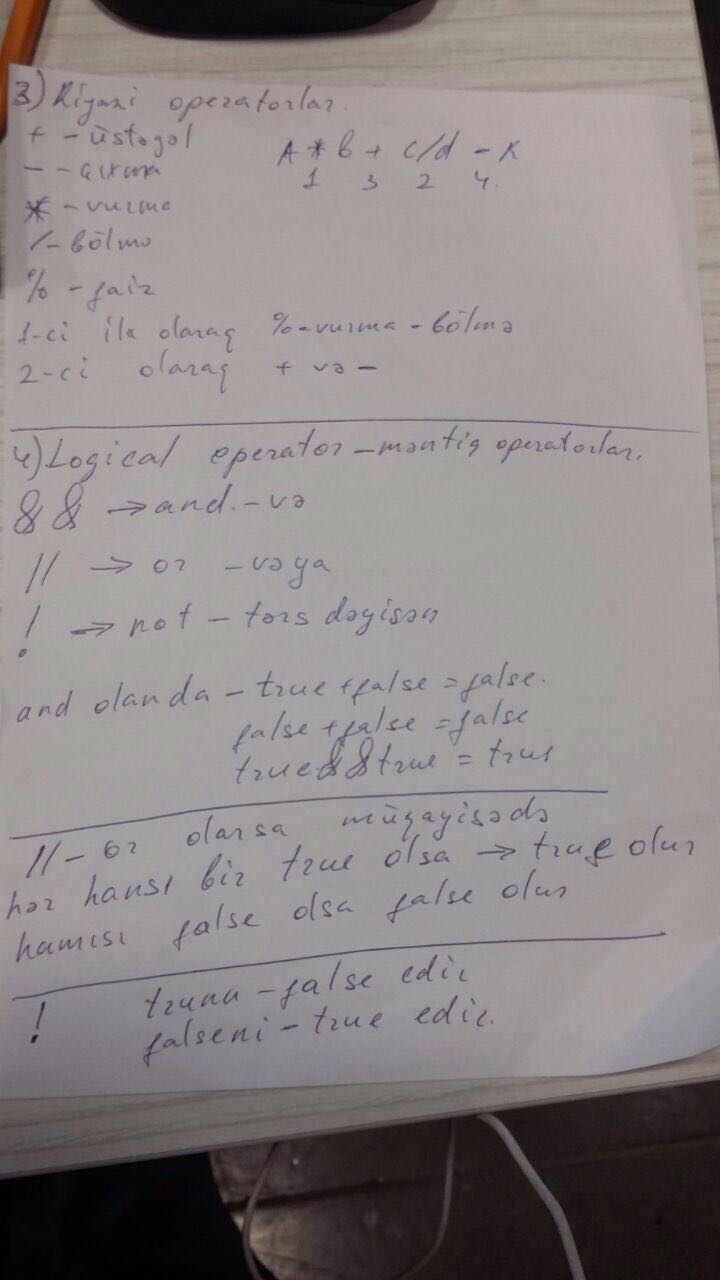 3) Riyazi operatorlar.
+ - üstəgəl
- - çıxma
A * b + c/d - k
1 3 2 4.
* - vurma
/ - bölmə
% - faiz
1-ci ilk olaraq % - vurma - bölmə
2-ci olaraq + və -
4) Logical operator - məntiq operatorlar.
&& → and. - və
// → or - vəya
! → not - tərs dəyişən
and olanda - true + false = false.
false + false = false
true && true = true
// - or olarsa müqayisədə
hər hansı bir true olsa → true olur
hamısı false olsa false olur
! trunu - false edir
falseni - true edir.